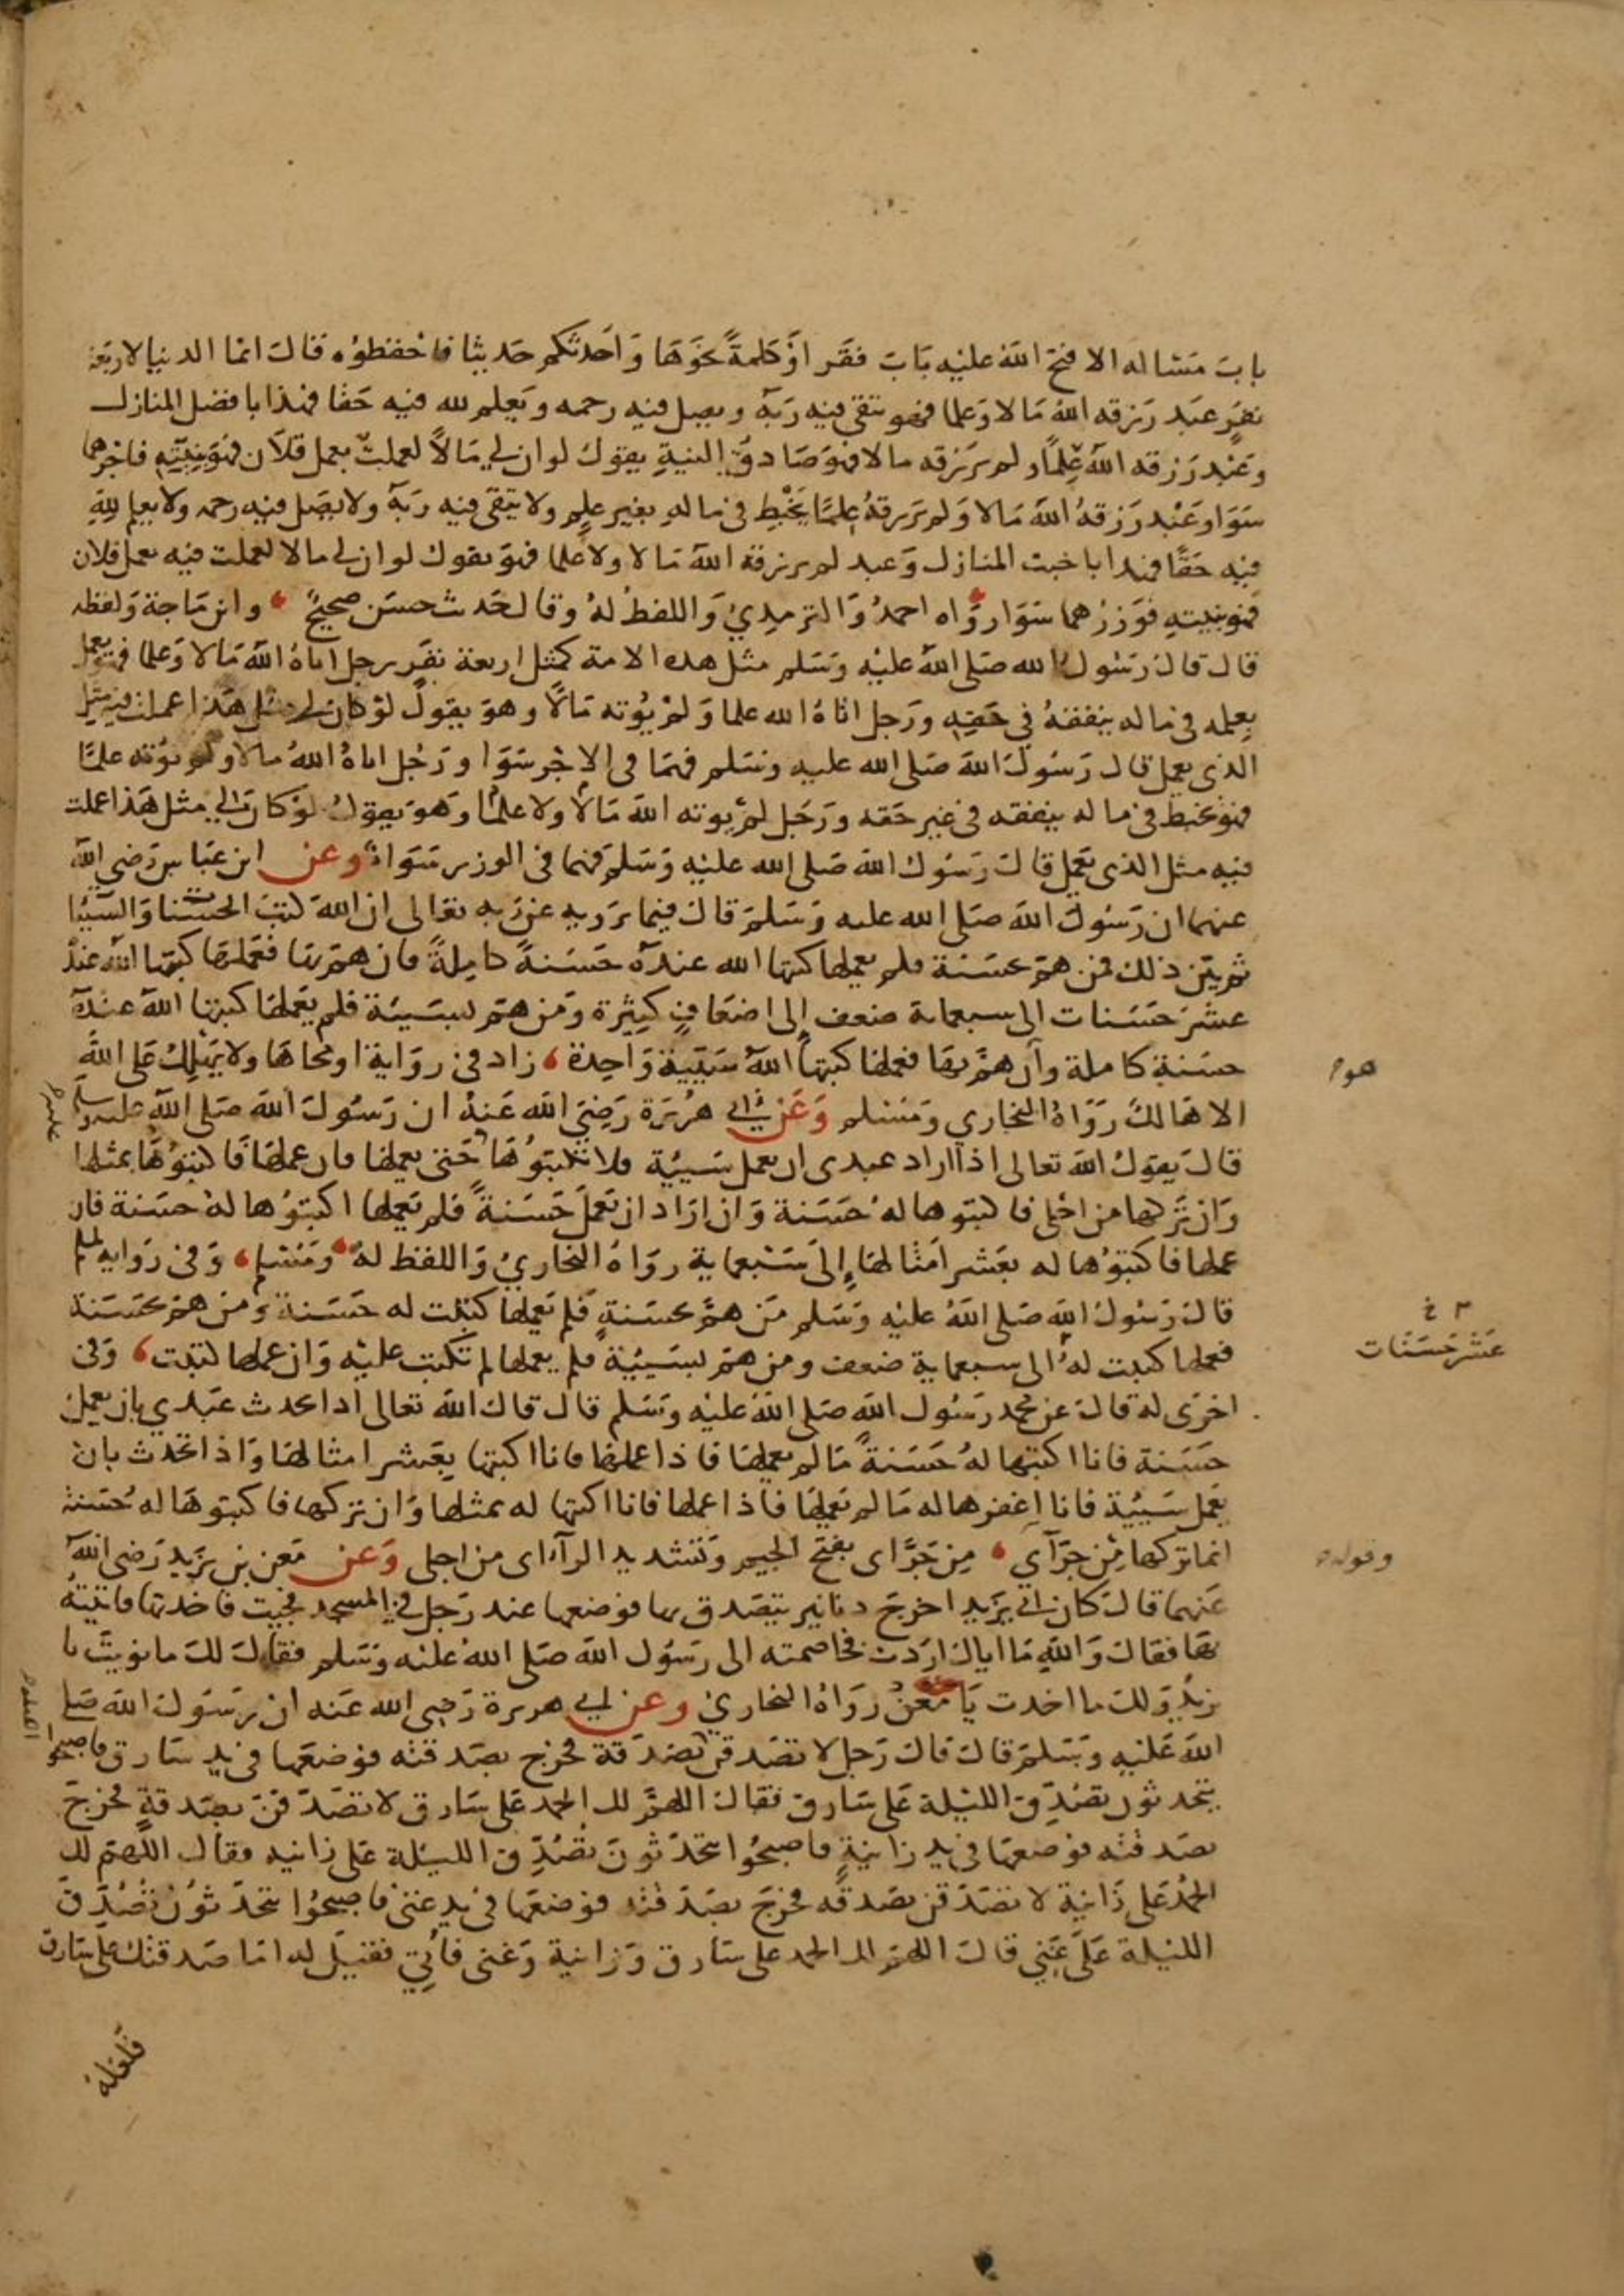 باب مسئالة الا فتح الله عليه باب فقر او كلمة نحوها واحدثكم حديثا فاحفظوه قال انما الدنيا لاربعة
نفر عبد رزقه الله مالا وعلما فهو يتقي فيه ربه ويصل فيه رحمه ويعلم لله فيه حقا فهذا بافضل المنازل
وعبد رزقه الله علما ولم يرزقه مالا فهو صادق النية يقول لو ان لي مالا لعملت بعمل فلان فهو بنيته فاجرهما
سوا وعبد رزقه الله مالا ولم يرزقه علما يخبط في ماله بغير علم ولا يتقي فيه ربه ولا يصل فيه رحمه ولا يعلم لله
فيه حقا فهذا باخبث المنازل وعبد لم يرزقه الله مالا ولا علما فهو يقول لو ان لي مالا لعملت فيه بعمل فلان
فهو بنيته فوزرهما سوا رواه احمد والترمذي واللفظ له وقال حديث حسن صحيح وابن ماجة ولفظه
قال قال رسول الله صلى الله عليه وسلم مثل هذه الامة كمثل اربعة نفر رجل اتاه الله مالا وعلما فهو يعمل
بعلمه في ماله ينفقه في حقه ورجل اتاه الله علما ولم يوته مالا وهو يقول لو كان لي مثل هذا عملت فيه مثل
الذي يعمل قال رسول الله صلى الله عليه وسلم فهما في الاجر سوا ورجل اتاه الله مالا ولم يوته علما
فهو يخبط في ماله ينفقه في غير حقه ورجل لم يوته الله مالا ولا علما وهو يقول لو كان لي مثل هذا عملت
فيه مثل الذي يعمل قال رسول الله صلى الله عليه وسلم فهما في الوزر سوا وعن ابن عباس رضي الله
عنهما ان رسول الله صلى الله عليه وسلم قال فيما يرويه عن ربه تعالى ان الله كتب الحسنات والسيئا
ثم بين ذلك فمن هم بحسنة فلم يعملها كتبها الله عنده حسنة كاملة فان هم بها فعملها كتبها الله عنده
عشر حسنات الى سبعماية ضعف الى اضعاف كثيرة ومن هم بسيئة فلم يعملها كتبها الله عنده
حسنة كاملة وان هم بها فعملها كتبها الله سيئة واحدة زاد في رواية او محاها ولا يهلك على الله
هو
الا هالك رواه البخاري ومسلم وعن ابي هريرة رضي الله عنه ان رسول الله صلى الله عليه وسلم
قال يقول الله تعالى اذا اراد عبدي ان يعمل سيئة فلا تكتبوها حتى يعملها فان عملها فاكتبوها بمثلها
وان تركها من اجلي فاكتبوها له حسنة وان اراد ان يعمل حسنة فلم يعملها اكتبوها له حسنة فان
عملها فاكتبوها له بعشر امثالها الى سبعماية رواه البخاري واللفظ له ومسلم وفي رواية لمسلم
قال رسول الله صلى الله عليه وسلم من هم بحسنة فلم يعملها كتبت له حسنة ومن هم بحسنة
عشر حسنات
فعملها كتبت له الى سبعماية ضعف ومن هم بسيئة فلم يعملها لم تكتب عليه وان عملها كتبت وفي
اخرى له قال عن محمد رسول الله صلى الله عليه وسلم قال قال الله تعالى اذا تحدث عبدي بان يعمل
حسنة فانا اكتبها له حسنة ما لم يعملها فاذا عملها فانا اكتبها بعشر امثالها واذا تحدث بان
يعمل سيئة فانا اغفرها له ما لم يعملها فاذا عملها فانا اكتبها له بمثلها وان تركها فاكتبوها له حسنة
انما تركها من جرآي من جرآى بفتح الجيم وتشديد الرآء اى من اجلي وعن معن بن يزيد رضي الله
وقوله
عنهما قال كان ابي يزيد اخرج دنانير يتصدق بها فوضعها عند رجل في المسجد فجيت فاخذتها فاتيته
بها فقال والله ما اياك اردت فخاصمته الى رسول الله صلى الله عليه وسلم فقال لك ما نويت يا
يزيد ولك ما اخذت يا معن رواه البخاري وعن ابي هريرة رضي الله عنه ان رسول الله صلى
الله عليه وسلم قال قال رجل لا تصدقن بصدقة فخرج بصدقته فوضعها في يد سارق فاصبحوا
يتحدثون تصدق الليلة على سارق فقال اللهم لك الحمد على سارق لا تصدقن بصدقة فخرج
بصدقته فوضعها في يد زانية فاصبحوا يتحدثون تصدق الليلة على زانيه فقال اللهم لك
الحمد على زانية لا تصدقن بصدقه فخرج بصدقته فوضعها في يد غني فاصبحوا يتحدثون تصدق
الليلة على غني قال اللهم لك الحمد على سارق وزانية وغني فأتي فقيل له اما صدقتك على سارق
فلعله